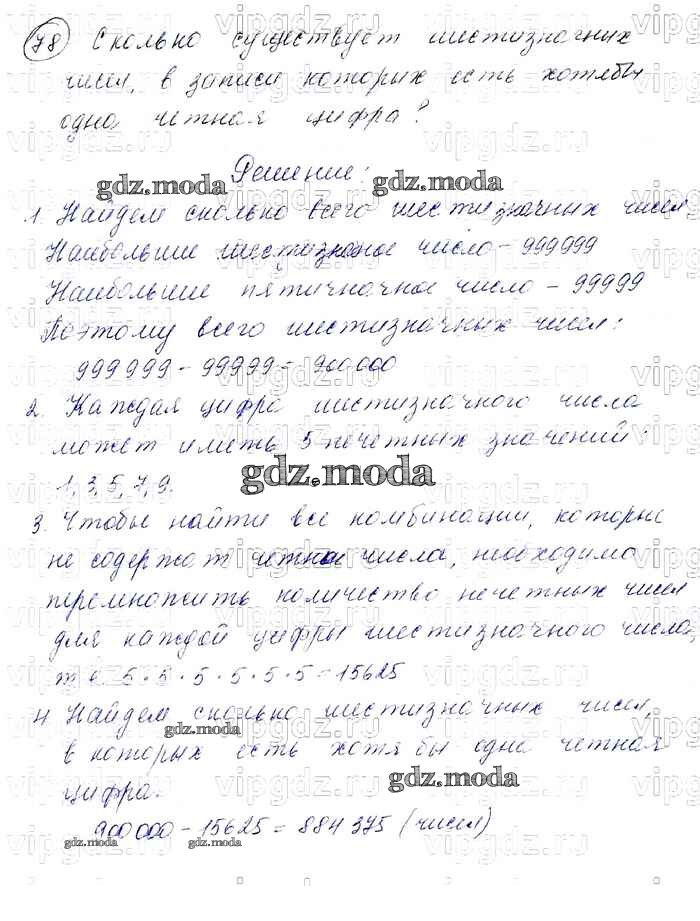 78 Сколько существует шестизначных
чисел, в записи которых есть хотябы
одна четная цифра?
Решение:
gdz.moda gdz.moda
1. Найдем сколько всего шестизначных чисел
Наибольшее шестизначное число - 999999
Наибольшие пятизначное число - 99999
Поэтому всего шестизначных чисел:
999999 - 99999 = 900000
2. Каждая цифра шестизначного числа
может иметь 5 нечетных значений:
1, 3, 5, 7, 9.
gdz.moda
3. Чтобы найти все комбинации, которые
не содержат четные числа, необходимо
перемножить количество нечетных чисел
для каждой цифры шестизначного числа,
т.е. 5 · 5 · 5 · 5 · 5 · 5 = 15625
4. Найдем сколько шестизначных чисел,
gdz.moda
в которых есть хотя бы одна четная
цифра.
gdz.moda
900000 - 15625 = 884375 (чисел)
gdz.moda gdz.moda
vipgdz.ru